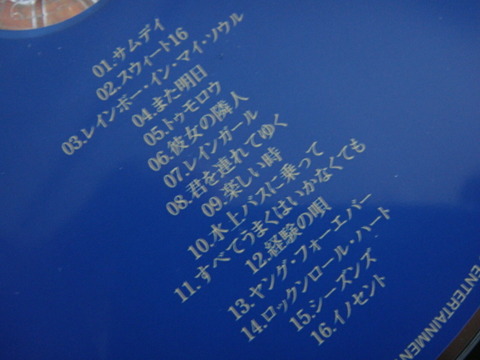 01.サムデイ
02.スウィート16
03.レインボー・イン・マイ・ソウル
04.また明日
05.トゥモロウ
06.彼女の隣人
07.レインガール
08.君を連れてゆく
09.楽しい時
10.水上バスに乗って
11.すべてうまくはいかなくても
12.経験の唄
13.ヤング・フォーエバー
14.ロックンロール・ハート
15.シーズンズ
16.イノセント
ENTERTAINMENT